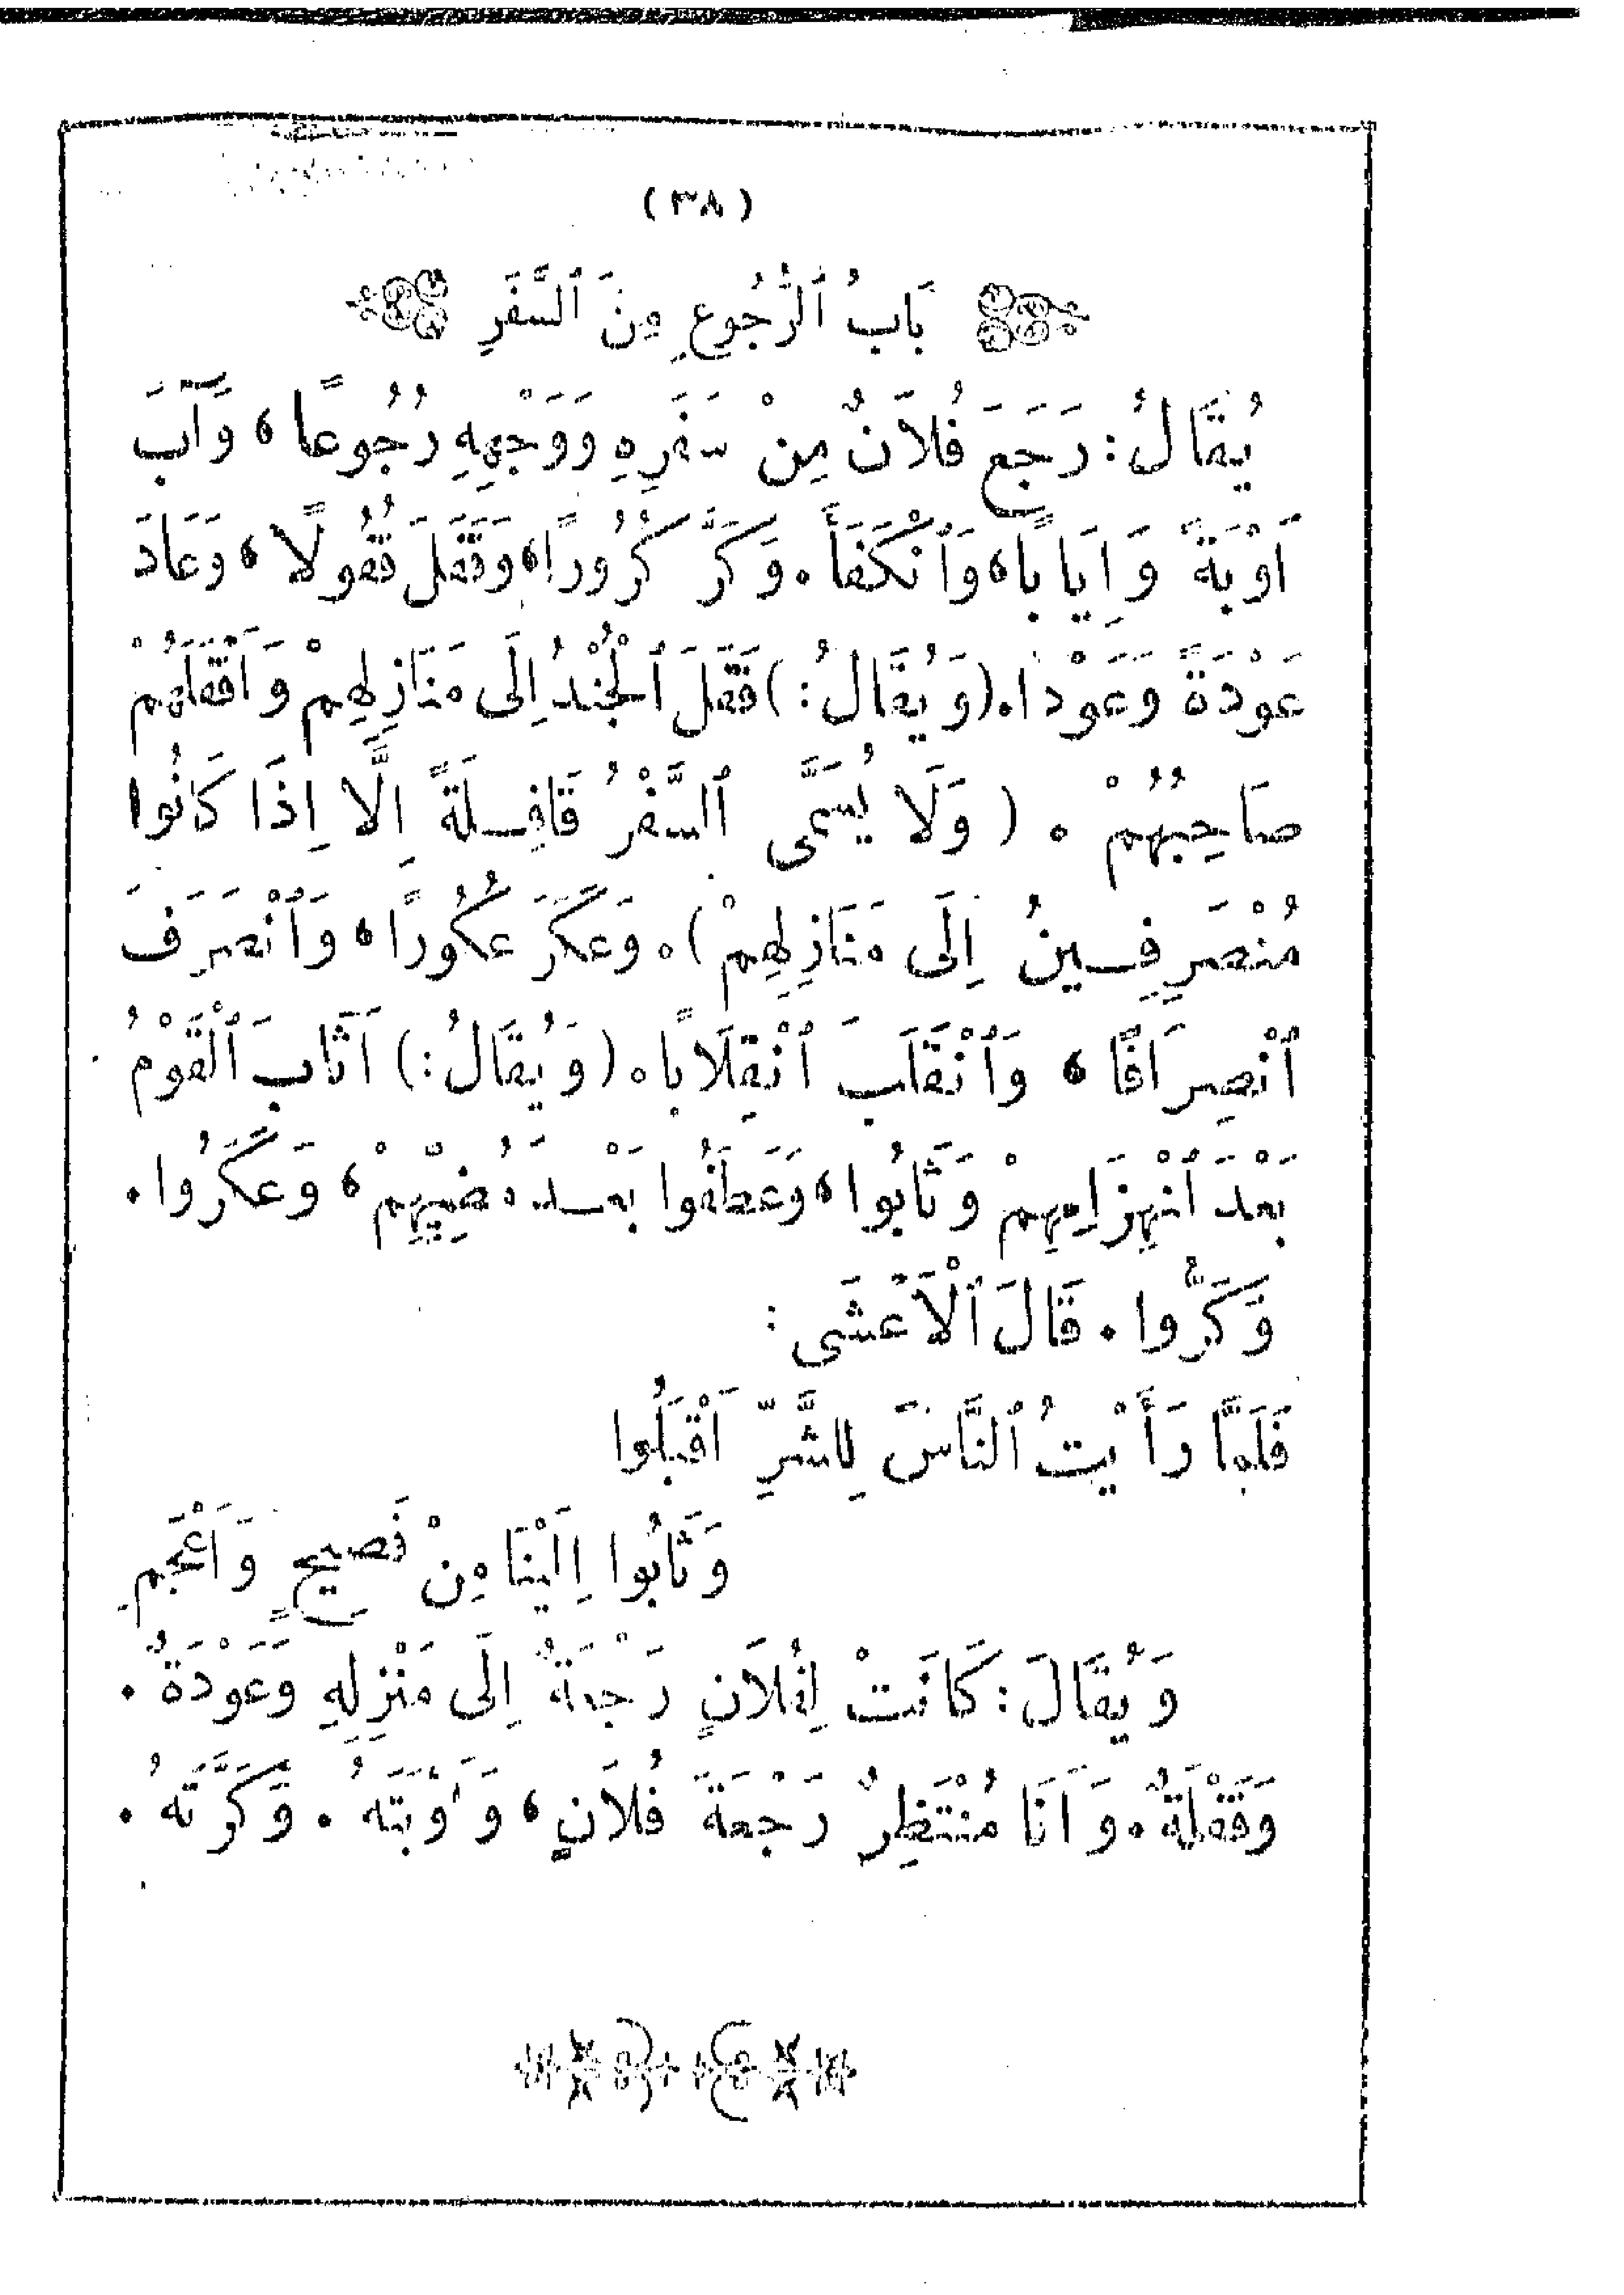 (٣٨)
بَابُ ٱلرُّجُوعِ مِنَ ٱلسَّفَرِ
يُقَالُ: رَجَعَ فُلَانٌ مِنْ سَفَرِهِ وَوَجْهِهِ رُجُوعًا، وَآبَ
اَوْبَةً وَاِيَابًا، وَٱنْكَفَأَ. وَكَرَّ كُرُورًا، وَقَفَلَ قُفُولًا، وَعَادَ
عَوْدَةً وَعَوْدًا. (وَيُقَالُ:) قَفَلَ ٱلْجُنْدُ اِلَى مَنَازِلِهِمْ وَاَقْفَلَهُمْ
صَاحِبُهُمْ. (وَلَا يُسَمَّى ٱلسَّفْرُ قَافِلَةً اِلَّا اِذَا كَانُوا
مُنْصَرِفِينَ اِلَى مَنَازِلِهِمْ). وَعَكَرَ عُكُورًا، وَٱنْصَرَفَ
ٱنْصِرَافًا، وَٱنْقَلَبَ ٱنْقِلَابًا. (وَيُقَالُ:) اَثَابَ ٱلْقَوْمُ
بَعْدَ ٱنْهِزَامِهِمْ وَثَابُوا، وَعَطَفُوا بَعْدَ مُضِيِّهِمْ، وَعَكَرُوا.
وَكَرُّوا. قَالَ ٱلْاَعْشَى:
فَلَمَّا رَأَيْتُ ٱلنَّاسَ لِلشَّرِّ اَقْبَلُوا
وَثَابُوا اِلَيْنَا مِنْ فَصِيحٍ وَاَعْجَمِ
وَيُقَالَ: كَانَتْ لِفُلَانٍ رَجْعَةٌ اِلَى مَنْزِلِهِ وَعَوْدَةٌ.
وَقَفْلَةٌ. وَاَنَا مُنْتَظِرٌ رَجْعَةَ فُلَانٍ، وَاَوْبَتَهُ. وَكَرَّتَهُ.